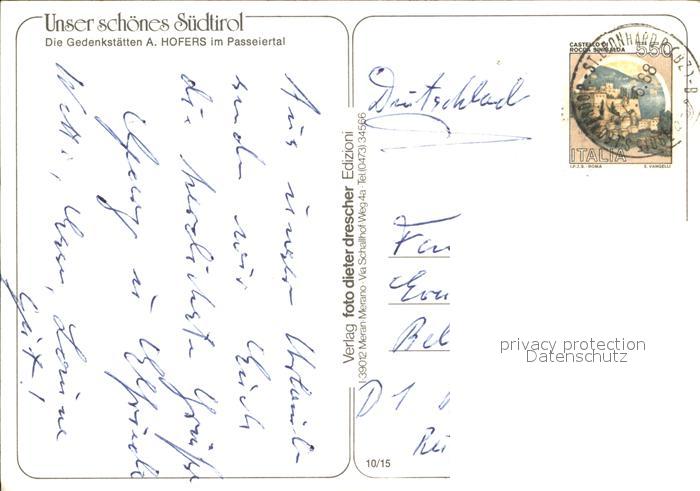 Unser schönes Südtirol
Die Gedenkstätten A. HOFERS im Passeiertal
Aus unserem Urlaub
senden wir Euch
die herzlichsten Grüße
Georg u. Elfriede
Wetter, Essen, Laune
gut!
Verlag foto dieter drescher Edizioni
I-39012 Meran Merano · Via Schallhof-Weg 4a · Tel. (0473) 34566
10/15
Deutschland
Fam
D
CASTELLO DI
ROCCA SINIBALDA
550
ITALIA
I.P.Z.S. - ROMA E. VANGELLI
privacy protection
Datenschutz